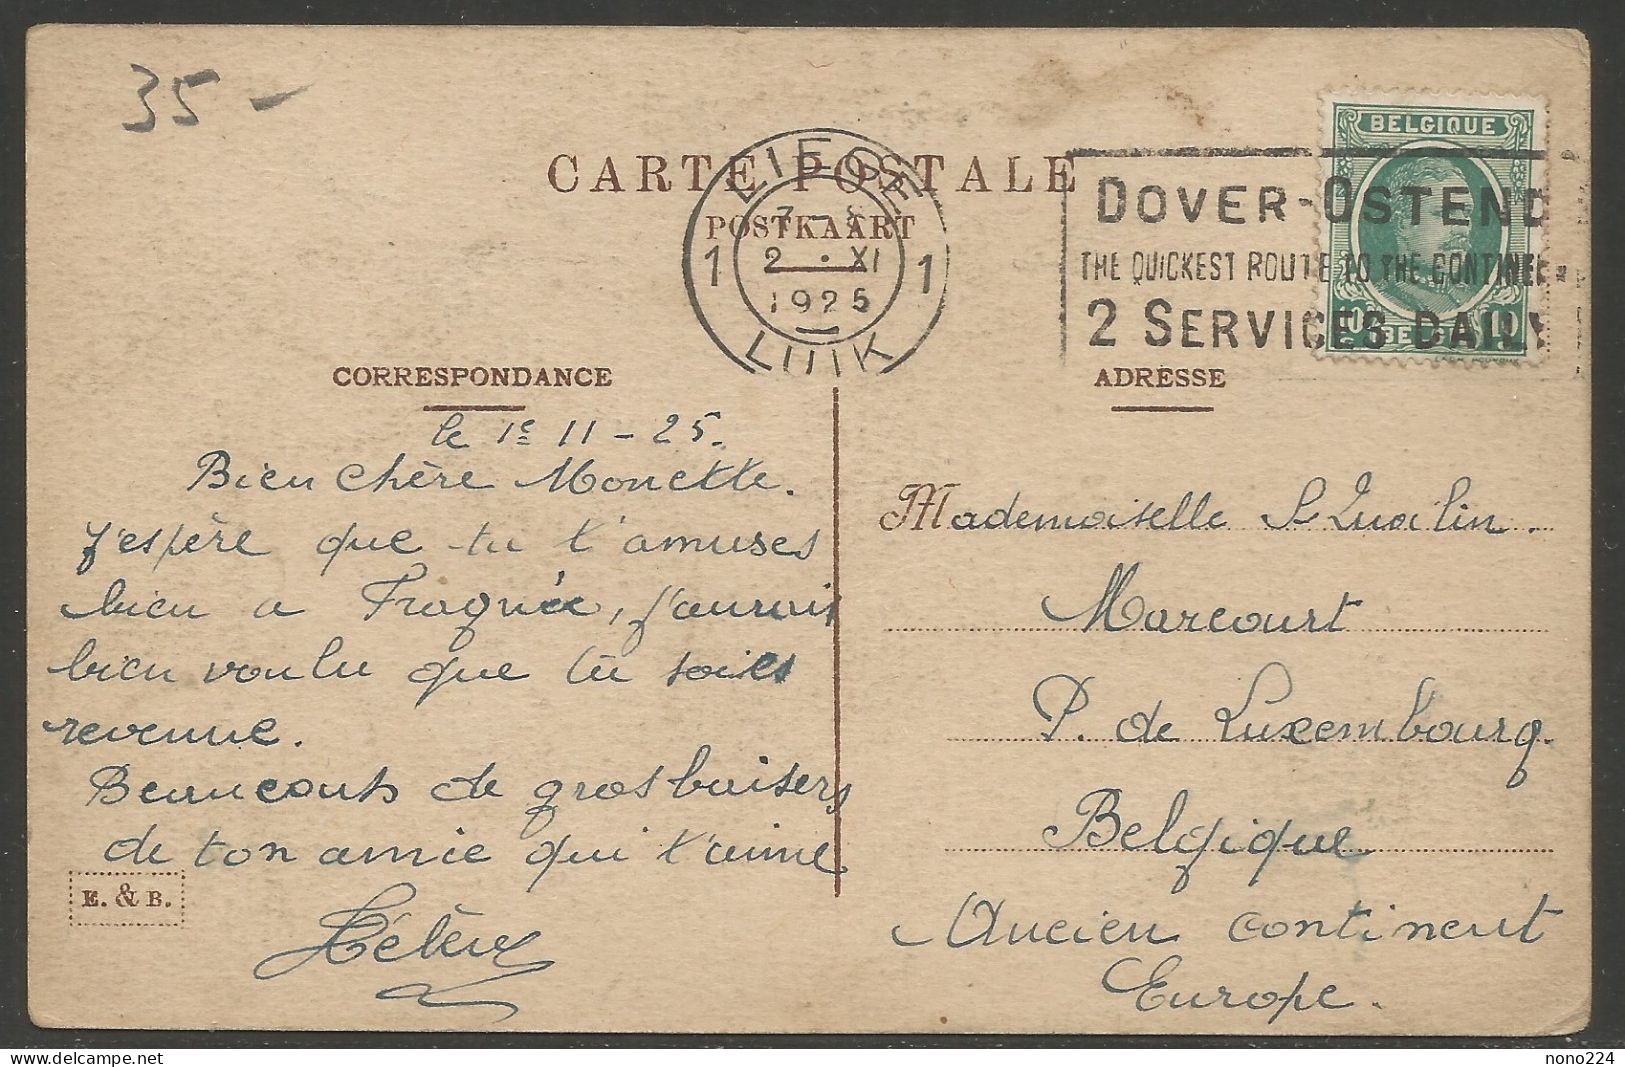 35 -
CARTE POSTALE
POSTKAART
LIEGE
7 - 8
1 2 · XI 1
1925
LUIK
BELGIQUE
DOVER-OSTEND
THE QUICKEST ROUTE TO THE CONTINEN
2 SERVICES DAILY
CORRESPONDANCE
le 1e 11 - 25.
Bien chère Monette.
J'espère que tu t'amuses
bien a Fraqnée, j'aurais
bien voulu que tu soies
revenue.
Beaucoup de gros baisers
de ton amie qui t'aime
E. & B.
ADRESSE
Mademoiselle
Marcourt
P. de Luxembourg.
Belgique
Ancien continent
Europe.
nono224